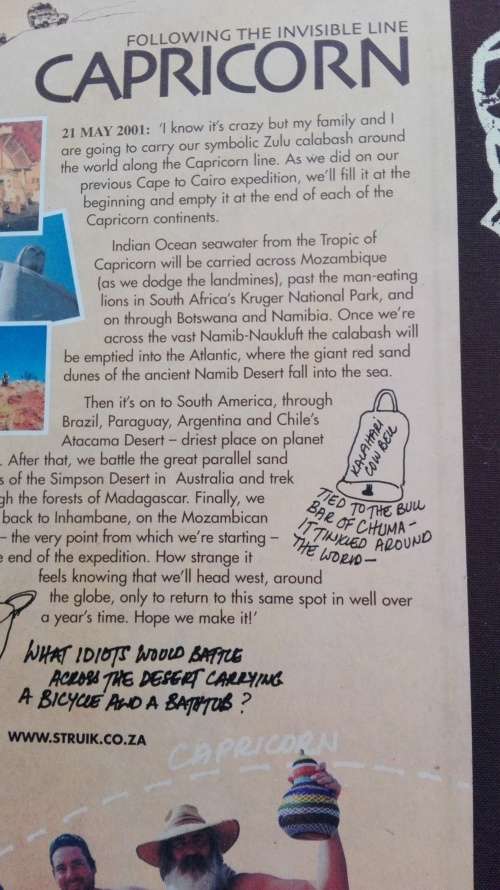 FOLLOWING THE INVISIBLE LINE
CAPRICORN
21 MAY 2001: 'I know it's crazy but my family and I
are going to carry our symbolic Zulu calabash around
the world along the Capricorn line. As we did on our
previous Cape to Cairo expedition, we'll fill it at the
beginning and empty it at the end of each of the
Capricorn continents.
Indian Ocean seawater from the Tropic of
Capricorn will be carried across Mozambique
(as we dodge the landmines), past the man-eating
lions in South Africa's Kruger National Park, and
on through Botswana and Namibia. Once we're
across the vast Namib-Naukluft the calabash will
be emptied into the Atlantic, where the giant red sand
dunes of the ancient Namib Desert fall into the sea.
Then it's on to South America, through
Brazil, Paraguay, Argentina and Chile's
Atacama Desert – driest place on planet
. After that, we battle the great parallel sand
s of the Simpson Desert in Australia and trek
gh the forests of Madagascar. Finally, we
back to Inhambane, on the Mozambican
– the very point from which we're starting –
e end of the expedition. How strange it
feels knowing that we'll head west, around
the globe, only to return to this same spot in well over
a year's time. Hope we make it!'
KALAHARI
COW BELL
TIED TO THE BULL
BAR OF CHUMA –
IT TINKLED AROUND
THE WORLD –
WHAT IDIOTS WOULD BATTLE
ACROSS THE DESERT CARRYING
A BICYCLE AND A BATHTUB?
WWW.STRUIK.CO.ZA
CAPRICORN